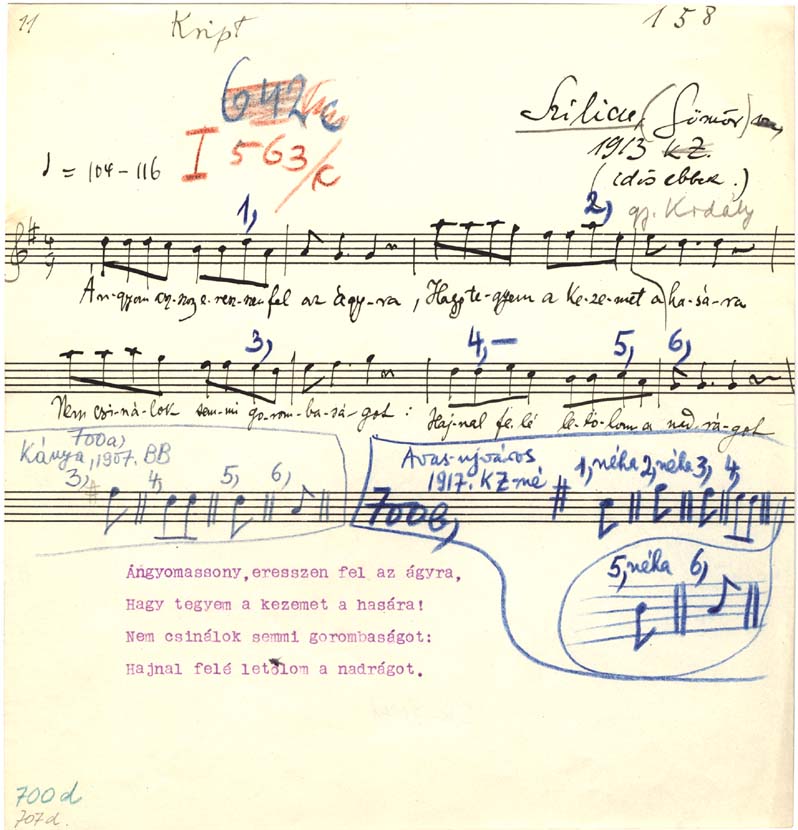 11
158
642
I 563/
Szilice, (Gömör)
1913 KZ.
(idősebbek.)
♩ = 104-116
gy. Kodály
1, 2,
4/4
Án-gyom asz-szony e-resz-szen fel az ágy-ra, Hagy te-gyem a ke-ze-met a ha-sá-ra
3, 4,- 5, 6,
Nem csi-ná-lok sem-mi go-rom-ba-sá-got: Haj-nal fe-lé le-tó-lom a nad-rá-got
700a)
Kánya, 1907. BB
3, 4, 5, 6,
Avas-ujváros
1917. KZ-né
700e,
1, néha 2, néha 3, 4,
5, néha 6,
Ángyomassony, eresszen fel az ágyra,
Hagy tegyem a kezemet a hasára!
Nem csinálok semmi gorombaságot:
Hajnal felé letolom a nadrágot.
700d
707d.